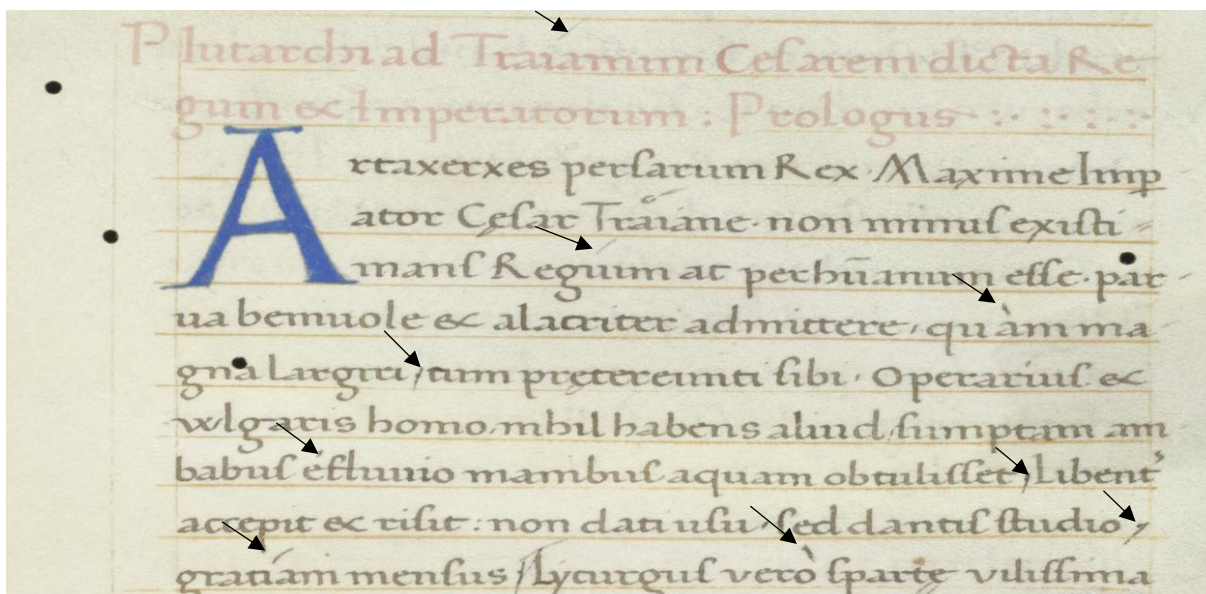 Plutarchi ad Traíanum Ceſarem dicta Re
gum & Imperatorum : Prologus · : · : · : · :
Artaxerxes perſarum Rex · Maxime Imꝑ
ator Ceſar Traiane · non minuſ exiſti -
manſ Reguím ac perhūanum eſſe · par -
ua bemuole & alacriter admittere , quàm ma
gna largiri , tum prętereunti ſibi · Operariuſ &
wlgaris homo nihil habens aliud ſumptam am
babuſ é fluuio manibuſ aquam obtuliſſet , Libent᾽
accepit & riſit : non dati uſu · ſed dantiſ ſtudio ,
gratíam menſus , Lycurguſ verò ſpartę viliſſima